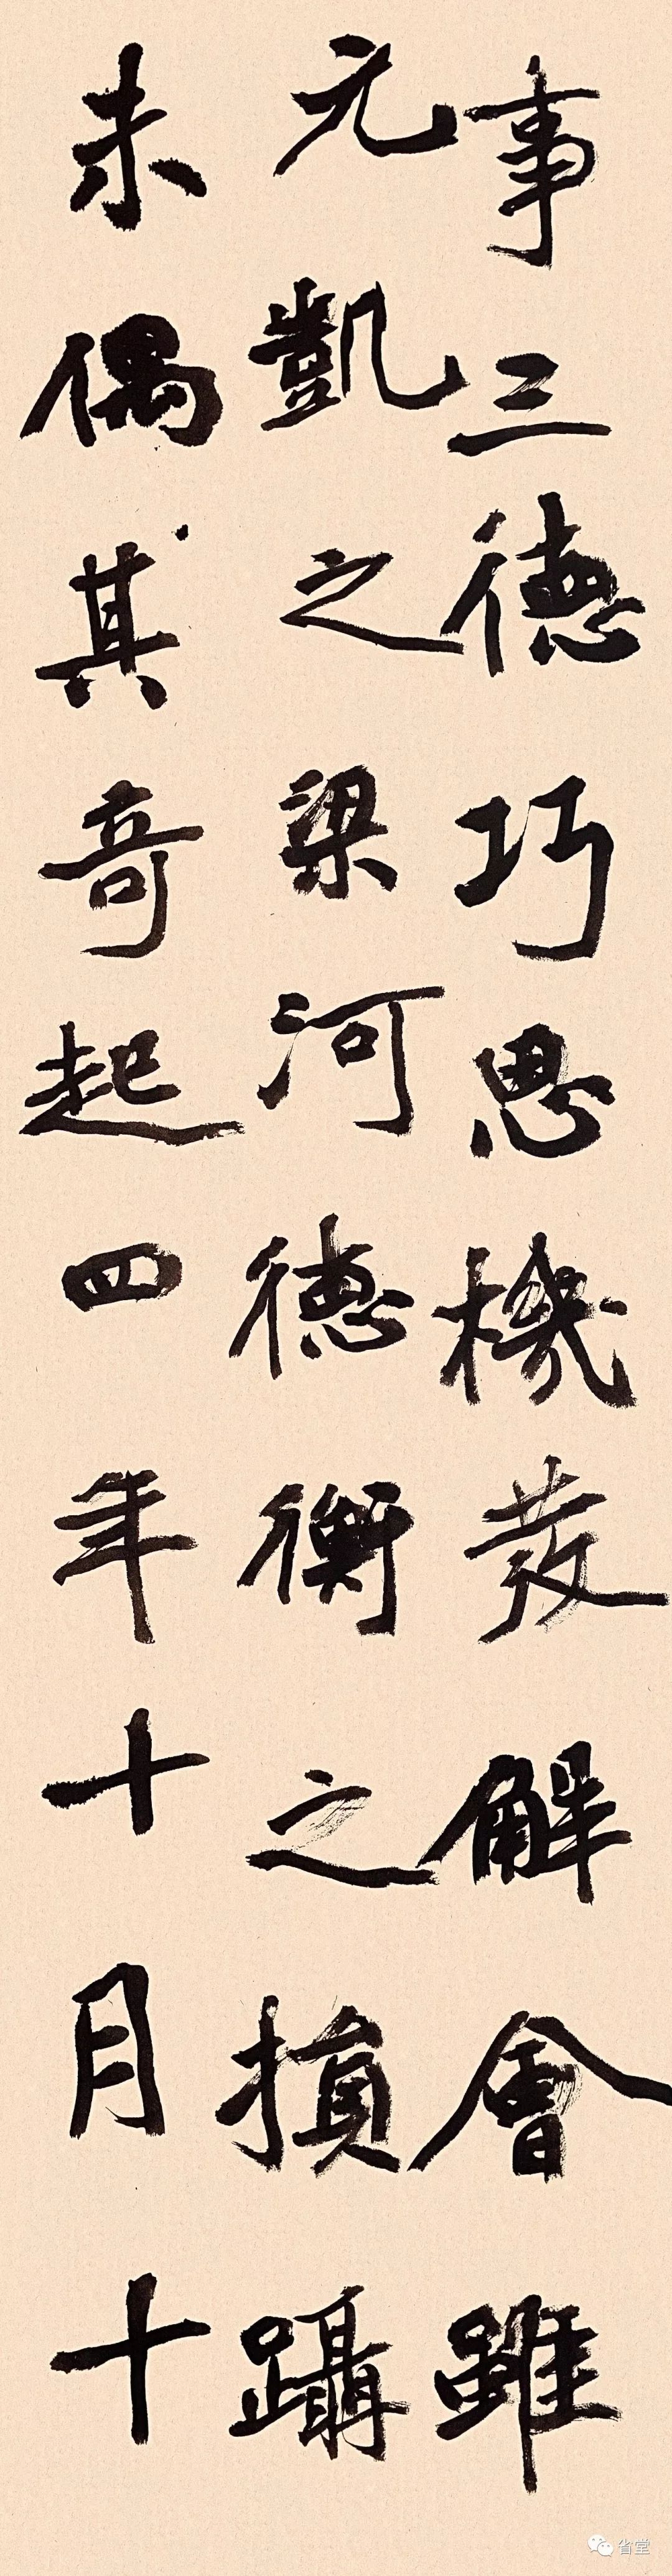 事三德巧思機發解會雖
元凱之梁河德衡之損躡
未偶其奇起四年十月十
省堂